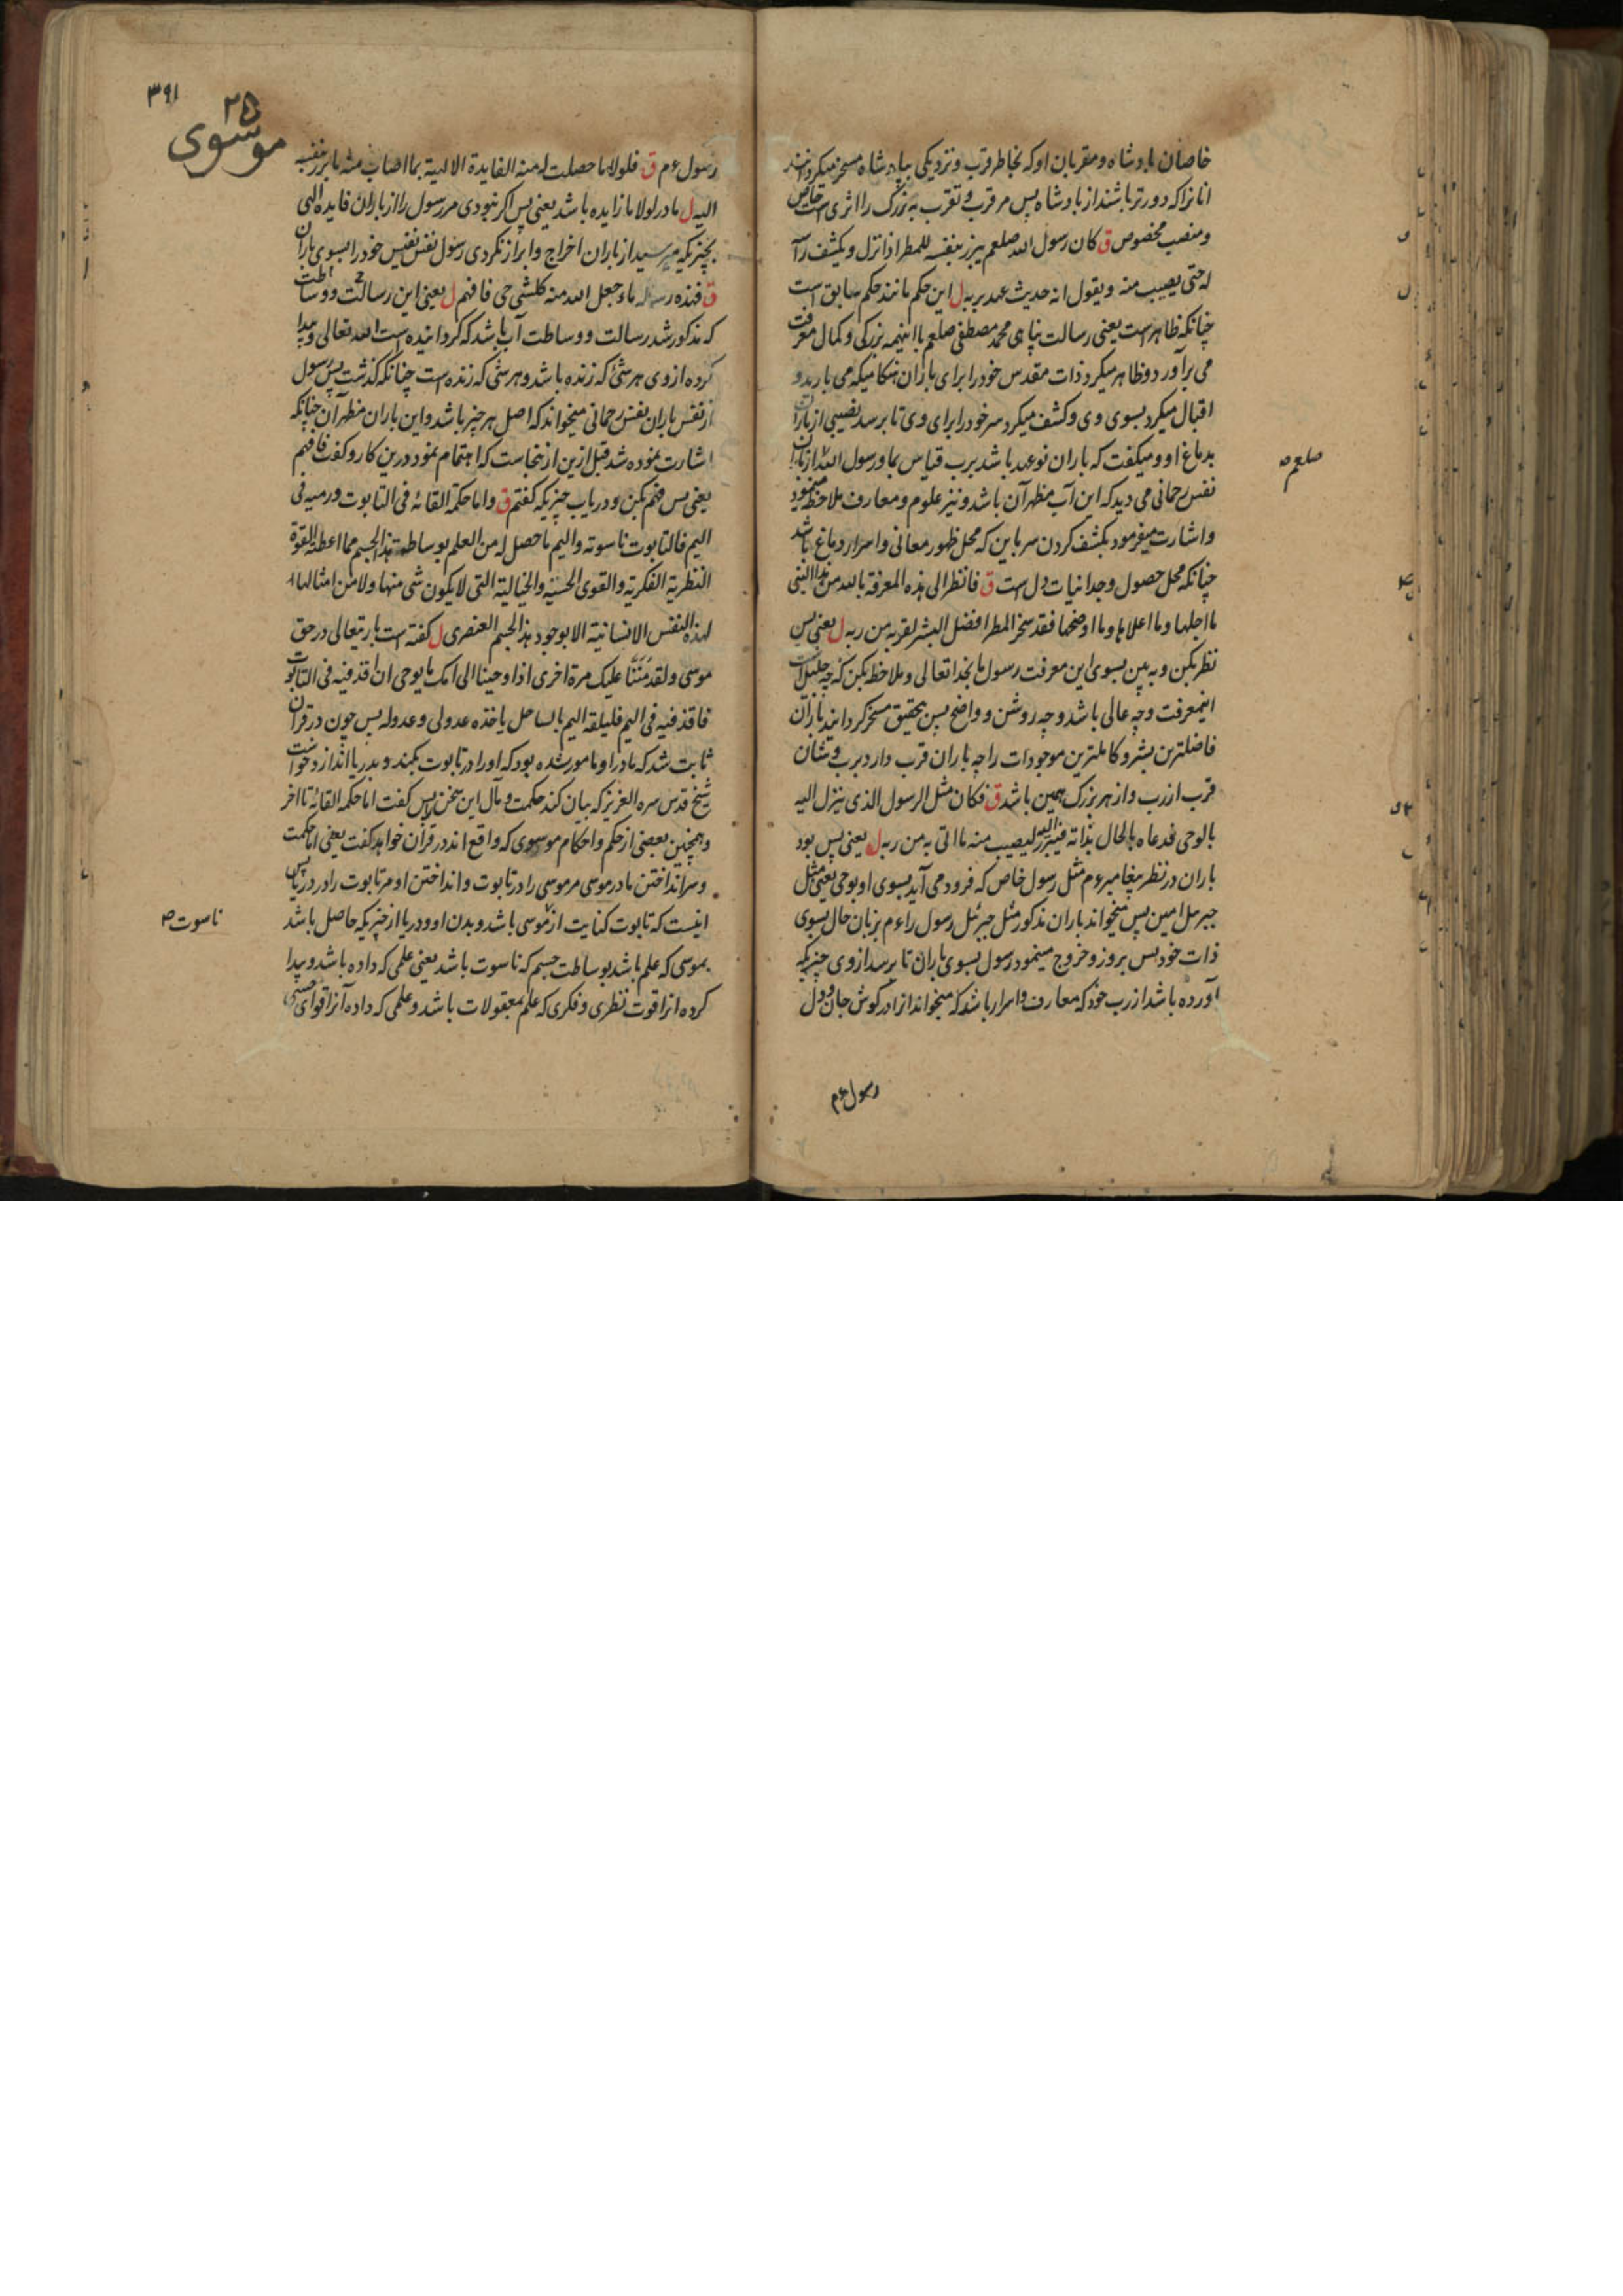 خاصان بادشاه و مقربان او که بخاطر قرب و نزدیکی ببادشاه مسخر میکردانند
انانرا که دورتر باشند از بادشاه پس مر قرب و تقرب به بزرگ را اثری است خاص
و منصب مخصوص ق کان رسول الله صلعم یبرز بنفسه للمطر اذا نزل و یکشف راسه
له حتی یصیب منه و یقول انه حدیث عهد بربه ل این حکم مانند حکم سابق است
چنانکه ظاهر است یعنی رسالت پناهی محمد مصطفی صلعم با اینهمه بزرکی و کمال معرفت
می برآورد و ظاهر میکرد ذات مقدس خود را برای باران هنکامیکه می بارید و
اقبال میکرد بسوی وی و کشف میکرد سر خود را برای وی تا برسد نصیبی از باران
بدماغ او و میکفت که باران نو عهد باشد برب قیاس بما و رسول الله از باران
صلعم ص
نفس رحمانی می دید که این آب مظهر آن باشد و نیز علوم و معارف ملاحظه مینمود
و اشارت میفرمود بکشف کردن سر باین که محل ظهور معانی و اسرار دماغ باشد
چنانکه محل حصول وجدانیات دل است ق فانظر الی هذه المعرفة بالله من هذا النبی
ما اجلها و ما اعلاها و ما اوضحها فقد سخر المطر افضل البشر لقربه من ربه ل یعنی پس
نظر بکن و به بین بسوی این معرفت رسول ما بخدا تعالی و ملاحظه بکن که چه جلیل است
اینمعرفت و چه عالی باشد و چه روشن و واضح پس بتحقیق مسخر کردانید باران
فاضلترین بشر و کاملترین موجودات را چه باران قرب دارد برب و شان
قرب از رب و از هر بزرگ همین باشد ق فکان مثل الرسول الذی ینزل الیه
بالوحی فدعاه بالحال بذاته فیبرز الیه لیصیب منه ما اتی به من ربه ل یعنی پس بود
باران در نظر پیغامبر ءم مثل رسول خاص که فرود می آید بسوی او بوحی یعنی مثل
جبرئل امین پس میخواند باران مذکور مثل جبرئل رسول را ءم بزبان حال بسوی
ذات خود پس بروز و خروج مینمود رسول بسوی باران تا برسد از وی چیزیکه
آورده باشد از رب خود که معارف و اسرار باشد که میخواند از ادر کوش جان و دل
رسول ءم
۳۹۱
۲۵
موسوی
رسول ءم ق فلولا ما حصلت له منه الفایدة الالهیة بما اصاب منه ما برز بنفسه
الیه ل ما در لولا ما زایده باشد یعنی پس اکر نبودی مر رسول را از باران فایده الهی
بچیزیکه میرسید از باران اخراج و ابراز نکردی رسول نفس نفیس خود را بسوی باران
ق فهذه رساله ماء جعل الله منه کلشی حی فافهم ل یعنی این رسالت و وساطت
که مذکور شد رسالت و وساطت آب باشد که کردانیده است الله تعالی و پیدا
کرده از وی هر شئ که زنده باشد و هر شی که زنده است چنانکه گذشت پس رسول
از نفس باران نفس رحمانی میخواند که اصل هر چیز باشد و این باران مظهر آن چنانکه
اشارت نموده شد قبل ازین از ینجاست که اهتمام نمود درین کار و کفت فافهم
یعنی پس فهم بکن و دریاب چیزیکه کفتم ق و اما حکمة القائه فی التابوت و رمیه فی
الیم فالتابوت ناسوته و الیم ما حصل له من العلم بوساطة هذا الجسم مما اعطته القوة
النظریة الفکریة و القوی الحسیة و الخیالیة التی لا یکون شی منها و لا من امثالها
لهذه النفس الانسانیة الا بوجود هذا الجسم العنصری ل کفته است باریتعالی در حق
موسی و لقد مَنَنّا علیک مرة اخری اذ اوحینا الی امک ما یوحی ان اقذفیه فی التابوت
فاقذفیه فی الیم فلیلقه الیم بالساحل یاخذه عدو لی و عدو له پس چون در قران
ثابت شد که مادر او مامور شده بود که او را در تابوت بکند و بدریا اندازد خواست
شیخ قدس سره العزیز که بیان کند حکمت و مآل این سخن را پس کفت اما حکمه القائه تا اخر
و همچنین بعضی از حکم و احکام موسوی که واقع اند در قرآن خواهد کفت یعنی اما حکمت
و سر انداختن مادر موسی مر موسی را در تابوت و انداختن او مر تابوت را در دریا پس
اینست که تابوت کنایت از موسی باشد و بدن او و دریا از چیزیکه حاصل باشد
ناسوت ص
بموسی که علم باشد بوساطت جسم که ناسوت باشد یعنی علمی که داده باشد و پیدا
کرده انرا قوت نظری و فکری که علم بمعقولات باشد و علمی که داده آنرا قوای حسی